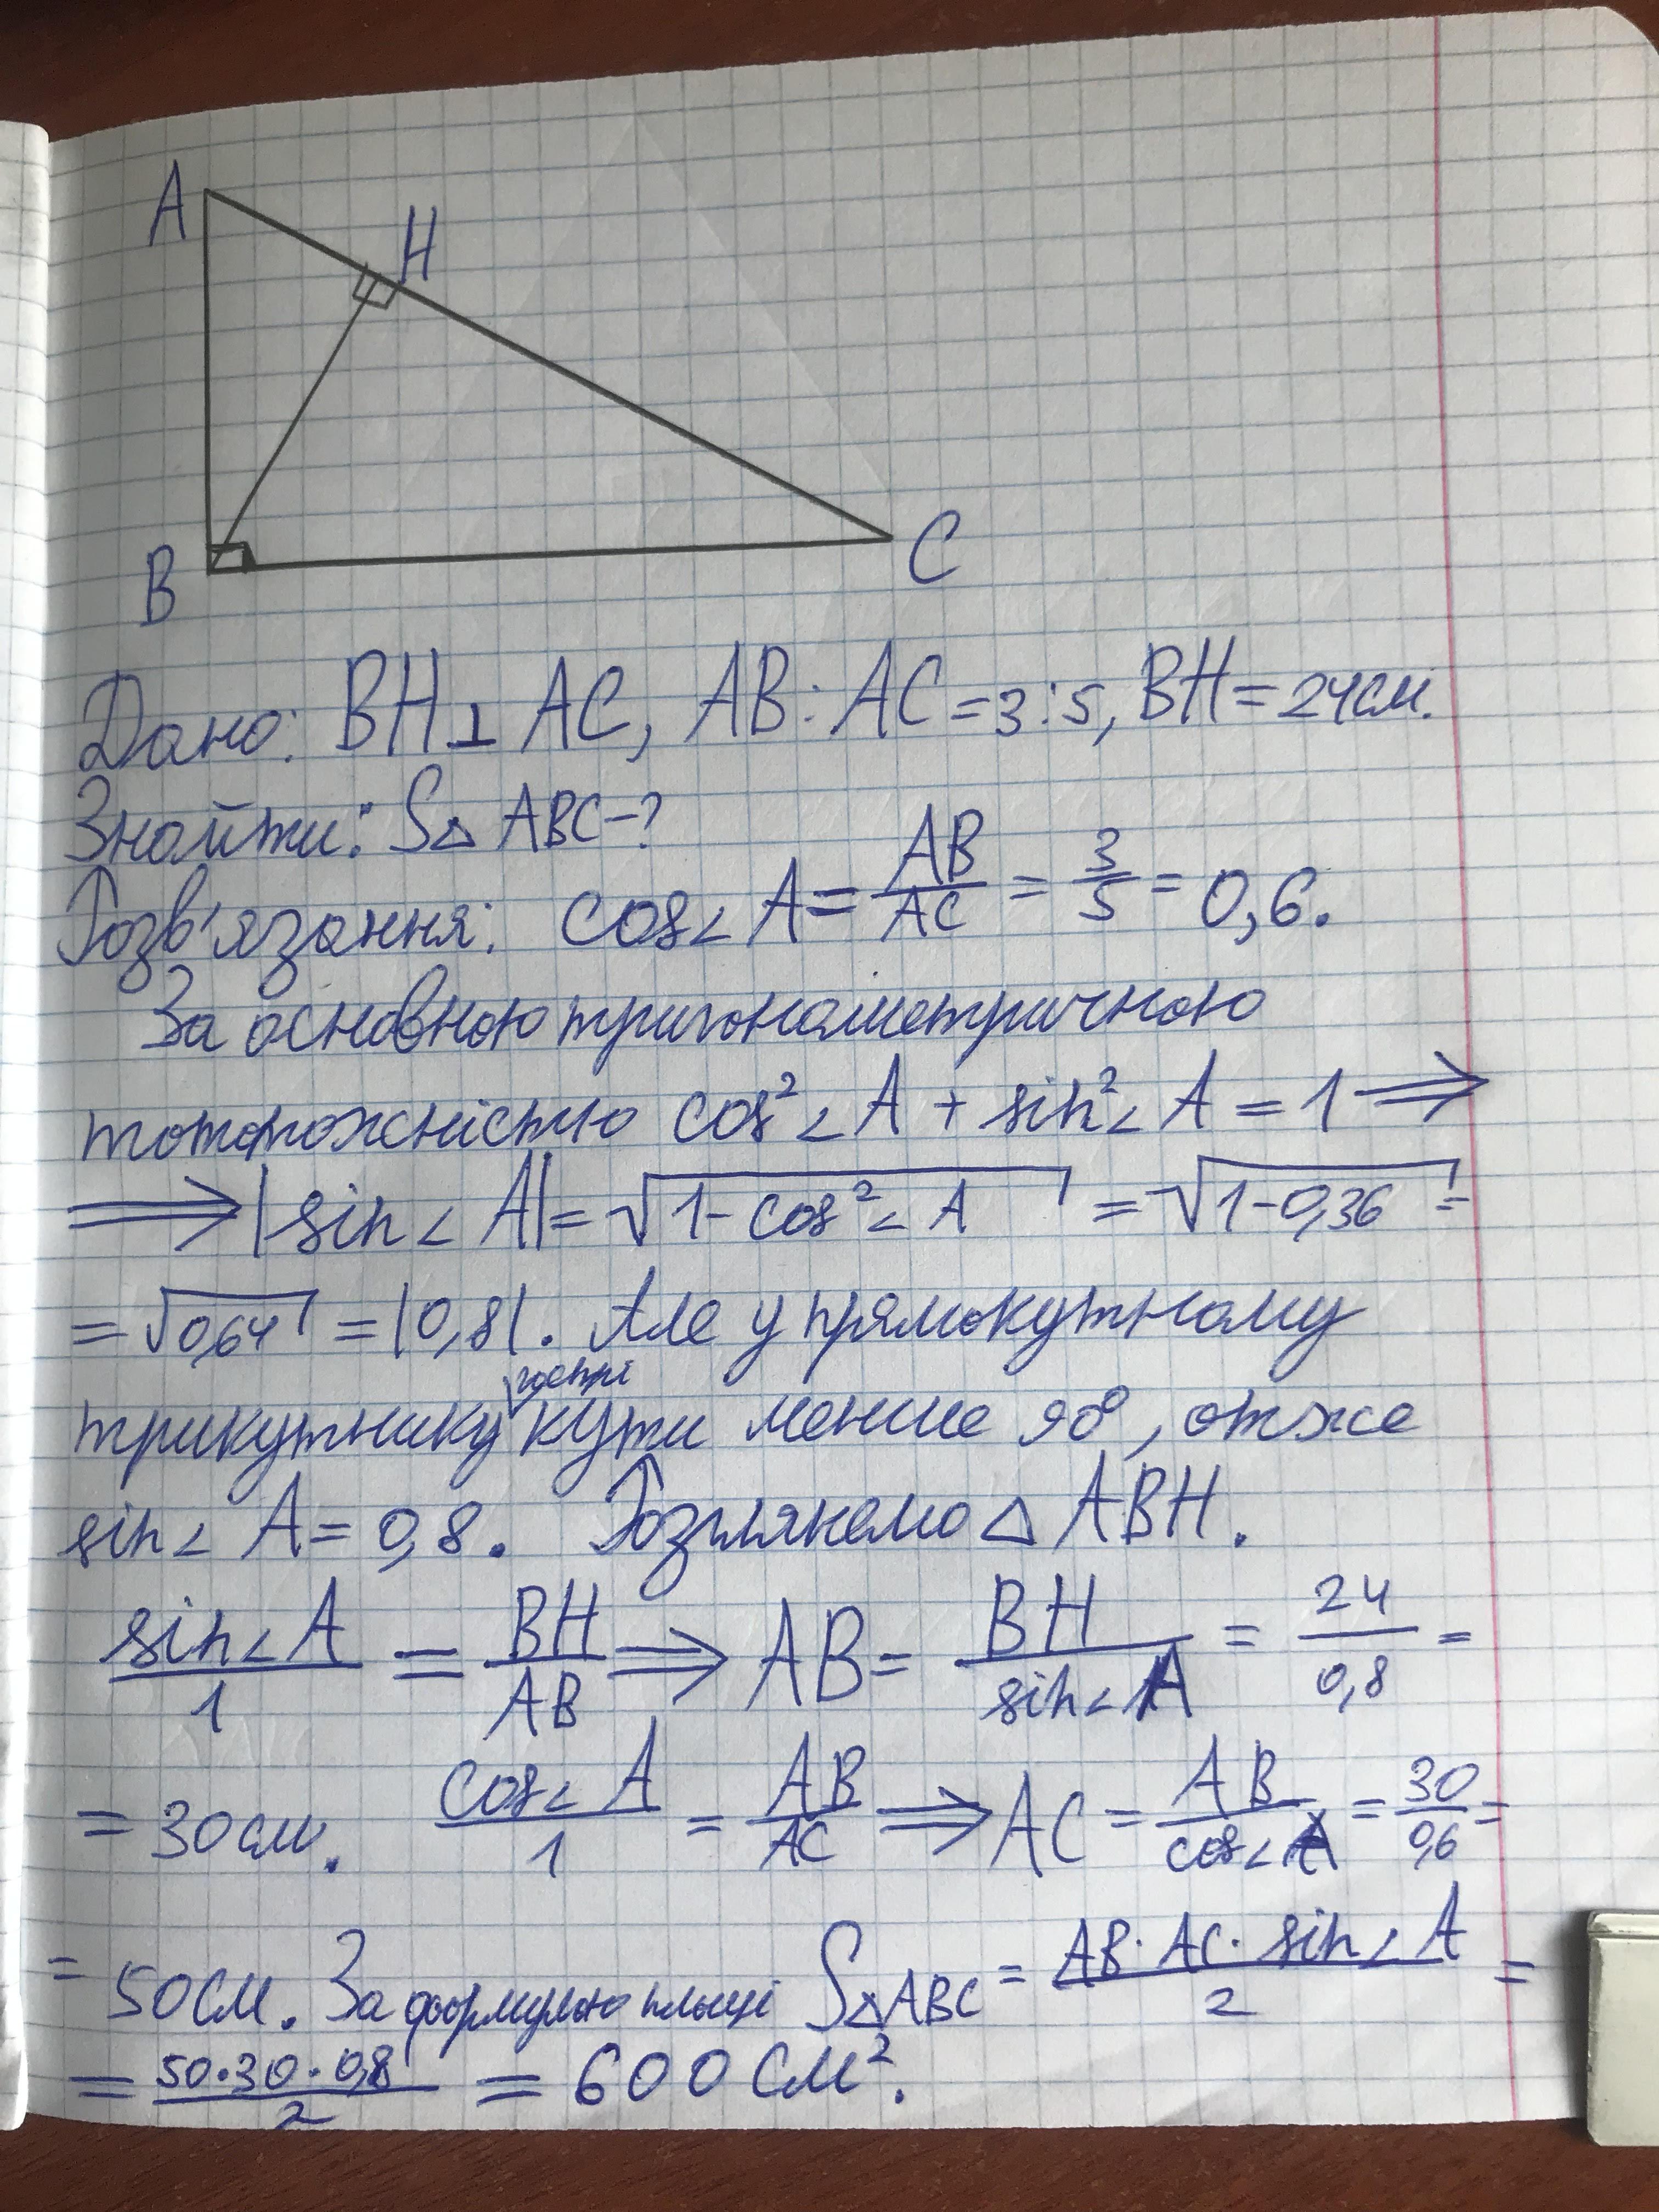 A
H
B
C
Дано: BH⊥AC, AB:AC=3:5, BH=24см.
Знайти: S△ABC-?
Розв'язання: cos∠A = AB/AC = 3/5 = 0,6.
За основною тригонометричною
тотожністю cos²∠A + sin²∠A = 1 ⟹
⟹ |sin∠A| = √(1-cos²∠A) = √(1-0,36) =
= √0,64 = |0,8|. Але у прямокутному
гострі
трикутнику кути менше 90°, отже
sin∠A = 0,8. Розглянемо △ABH.
sin∠A/1 = BH/AB ⟹ AB = BH/sin∠A = 24/0,8 =
= 30см. cos∠A/1 = AB/AC ⟹ AC = AB/cos∠A = 30/0,6 =
= 50см. За формулою площі S△ABC = AB·AC·sin∠A/2 =
= 50·30·0,8/2 = 600см².